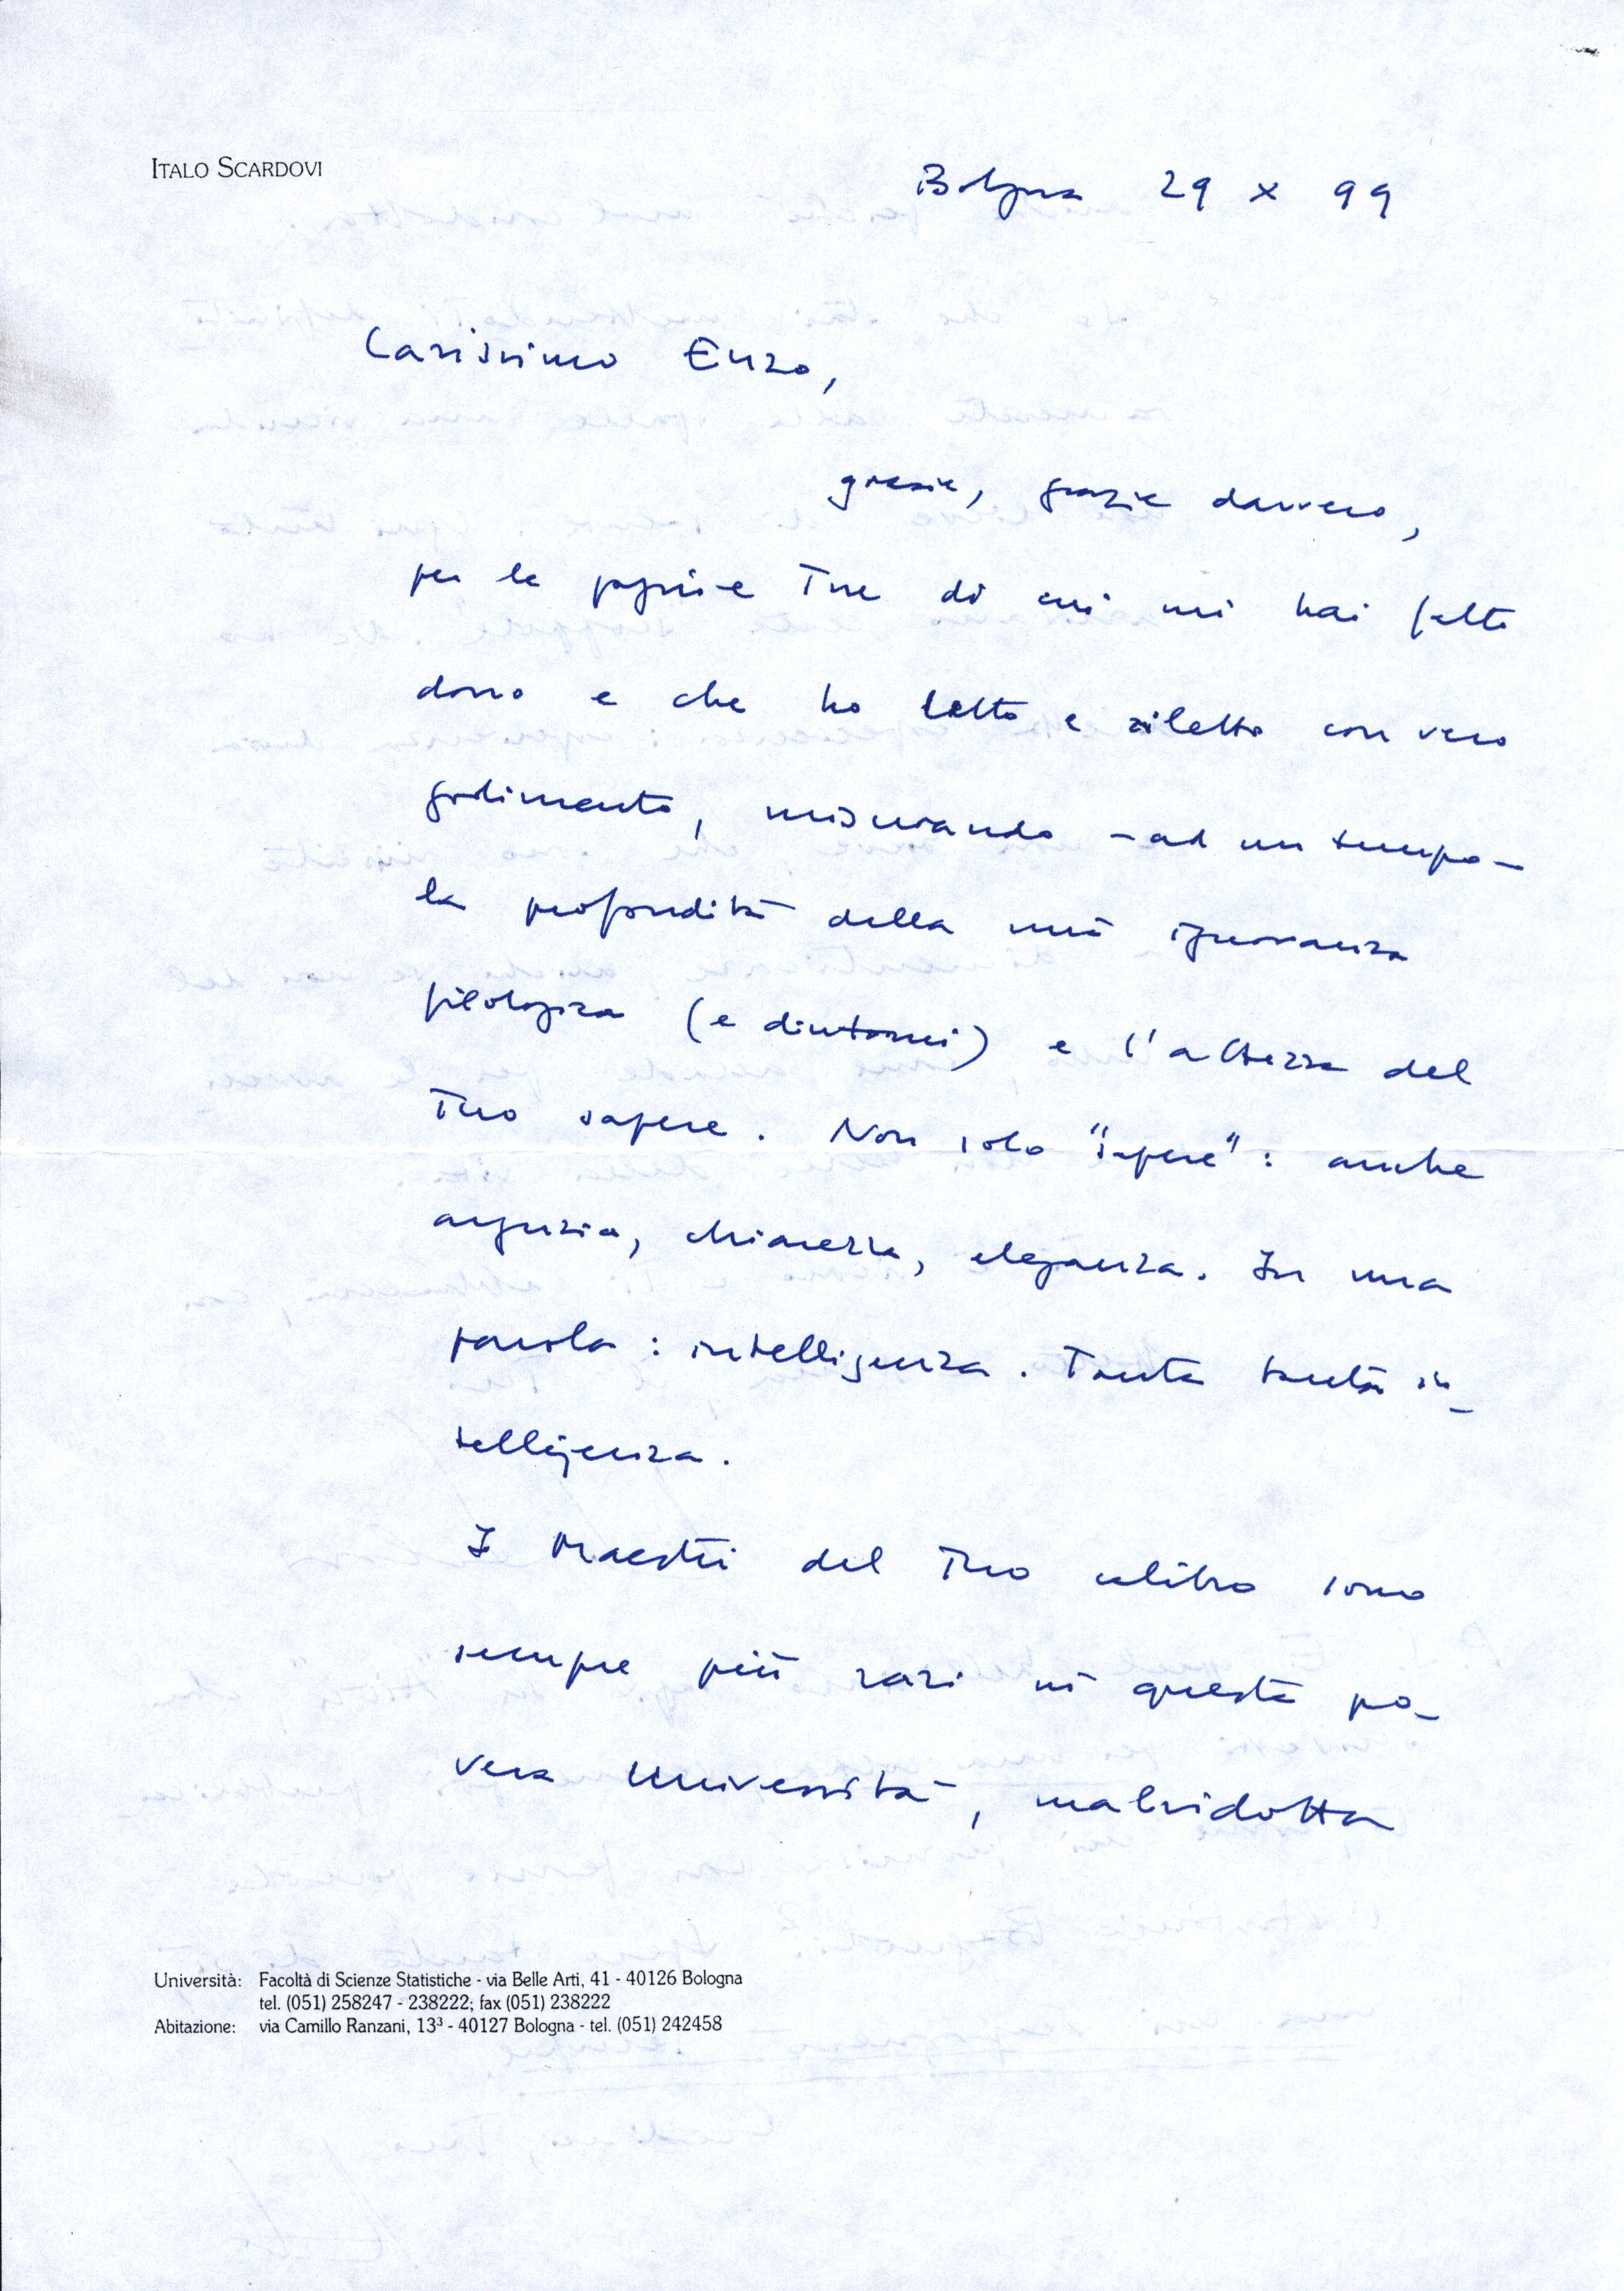 ITALO SCARDOVI
Bologna 29 X 99
Carissimo Enzo,
grazie, grazie davvero,
per le pagine Tue di cui mi hai fatto
dono e che ho letto e riletto con vero
godimento, misurando - ad un tempo -
la profondità della mia ignoranza
filologica (e dintorni) e l'altezza del
Tuo sapere. Non solo "sapere": anche
arguzia, chiarezza, eleganza. In una
parola: intelligenza. Tanta tanta in-
telligenza.
I Maestri del Tuo calibro sono
sempre più rari in questa po-
vera Università, malridotta
Università: Facoltà di Scienze Statistiche - via Belle Arti, 41 - 40126 Bologna
tel. (051) 258247 - 238222; fax (051) 238222
Abitazione: via Camillo Ranzani, 13³ - 40127 Bologna - tel. (051) 242458